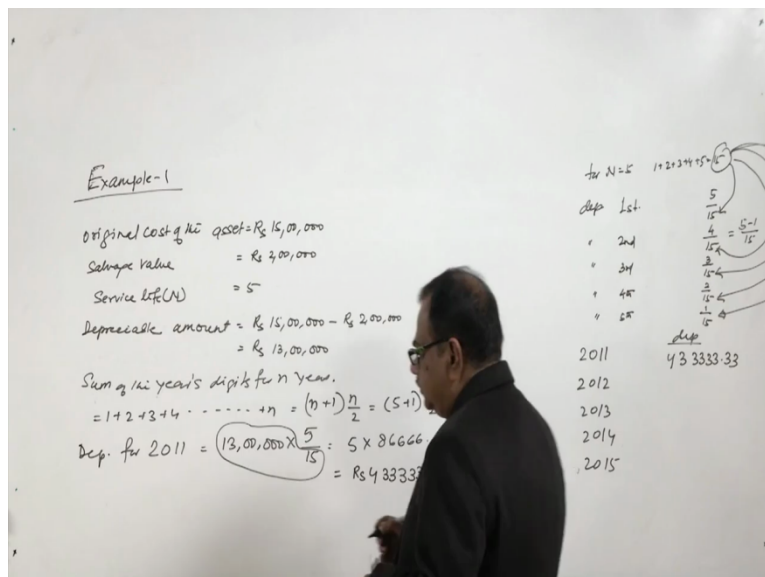 Example-1
Original cost of the asset = Rs 15,00,000
Salvage value = Rs 2,00,000
Service life (N) = 5
Depreciable amount = Rs 15,00,000 - Rs 200,000
= Rs 13,00,000
Sum of the year's digits for n year.
= 1+2+3+4 ....... +n = (n+1) n/2 = (5+1)
Dep. for 2011 = 13,00,000 × 5/15 = 5 × 86666.
= Rs 433333
for N=5 1+2+3+4+5=15
dep 1st. 5/15
" 2nd 4/15 = 5-1/15
" 3rd 3/15
" 4th 2/15
" 5th 1/15
dep
2011 433333.33
2012
2013
2014
2015